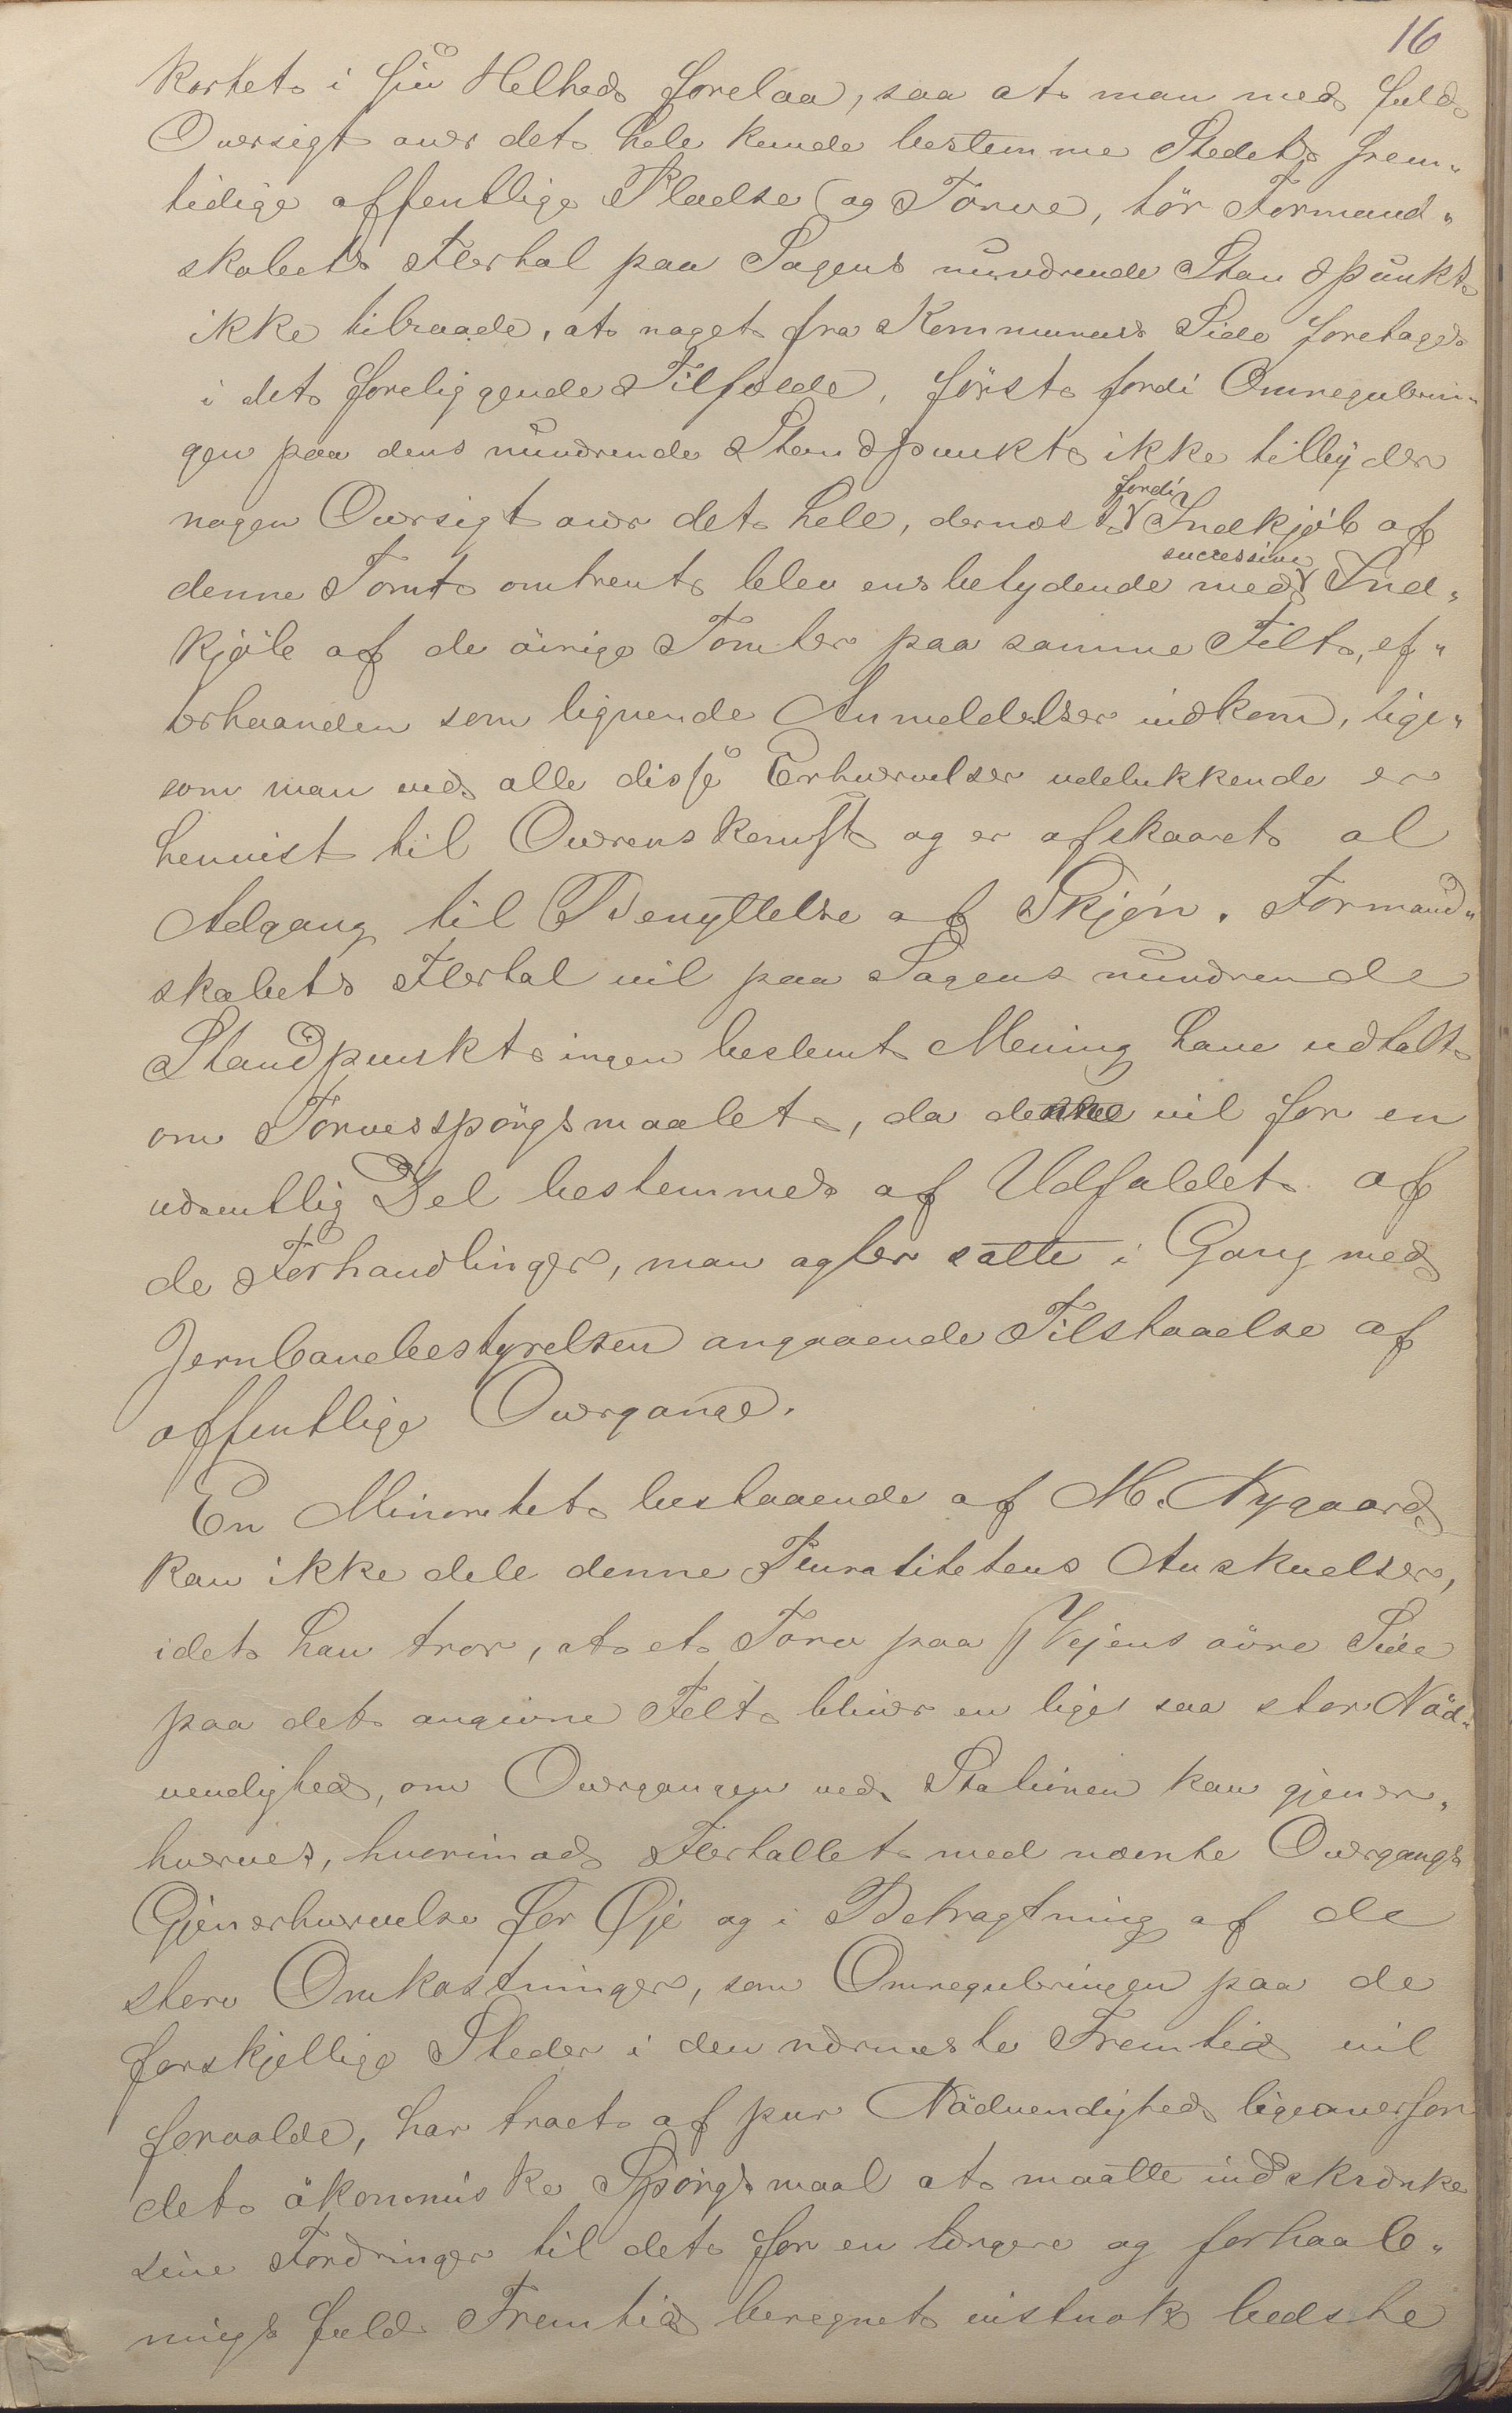 16
Kartet i sin Helhed forelaa, saa at man med fuld
Oversigt over det hele kunde bestemme Stedets frem„
tidige offentlige Pladse og Torve, tör Formand„
skabets Flertal paa Sagens nuværende Standpunkt
ikke tilraade, at noget fra Kommunens Side foretages
i det foreliggende Tilfælde, först fordi Omregulerin„
gen paa dens nuværende Standpunkt ikke tilbyder
nogen Oversigt over det hele, dernæst fordi Indkjöb af
denne Tomt omtrent blev ensbetydende med successive Ind„
kjöb af de övrige Tomter paa samme Felt, ef„
terhaanden som lignende Anmeldelser indkom, lige„
som man ved alle disse Erhvervelser udelukkende er
henvist til Overenskomst og er afskaaret al
Adgang til Benyttelse af Skjön. Formand„
skabets Flertal vil paa Sagens nuværende
Standpunkt ingen bestemt Mening have udtalt
om Torvesspörgsmaalet, da dette vil for en
væsentlig Del bestemmes af Udfaldet af
de Forhandlinger, man agter satte i Gang med
Jernbanebestyrelsen angaaende Tilstaaelse af
offentlige Overgange.
En Minoritet bestaaende af M. Nygaard
kan ikke dele denne Pluralitetens Anskuelser,
idet han tror, at et Torv paa Vejens övre Side
paa det angivne Felt bliver en lige saa stor Nöd„
vendighed, om Overgangen ved Stationen kan gjener„
hverves, hvorimod Flertallet med nævnte Overgangs
Gjenerhvervelse for Øje og i Betragtning af de
store Omkostninger, som Omreguleringen paa de
forskjellige Steder i den nærmeste Fremtid vil
forvolde, har troet af pur Nödvendighed ligeoverfor
det ökonomiske Spörgsmaal at maatte indskrænke
sine Fordringer til det for en længere og forhaab„
ningsfuld Fremtid beregnet vistnok bedste